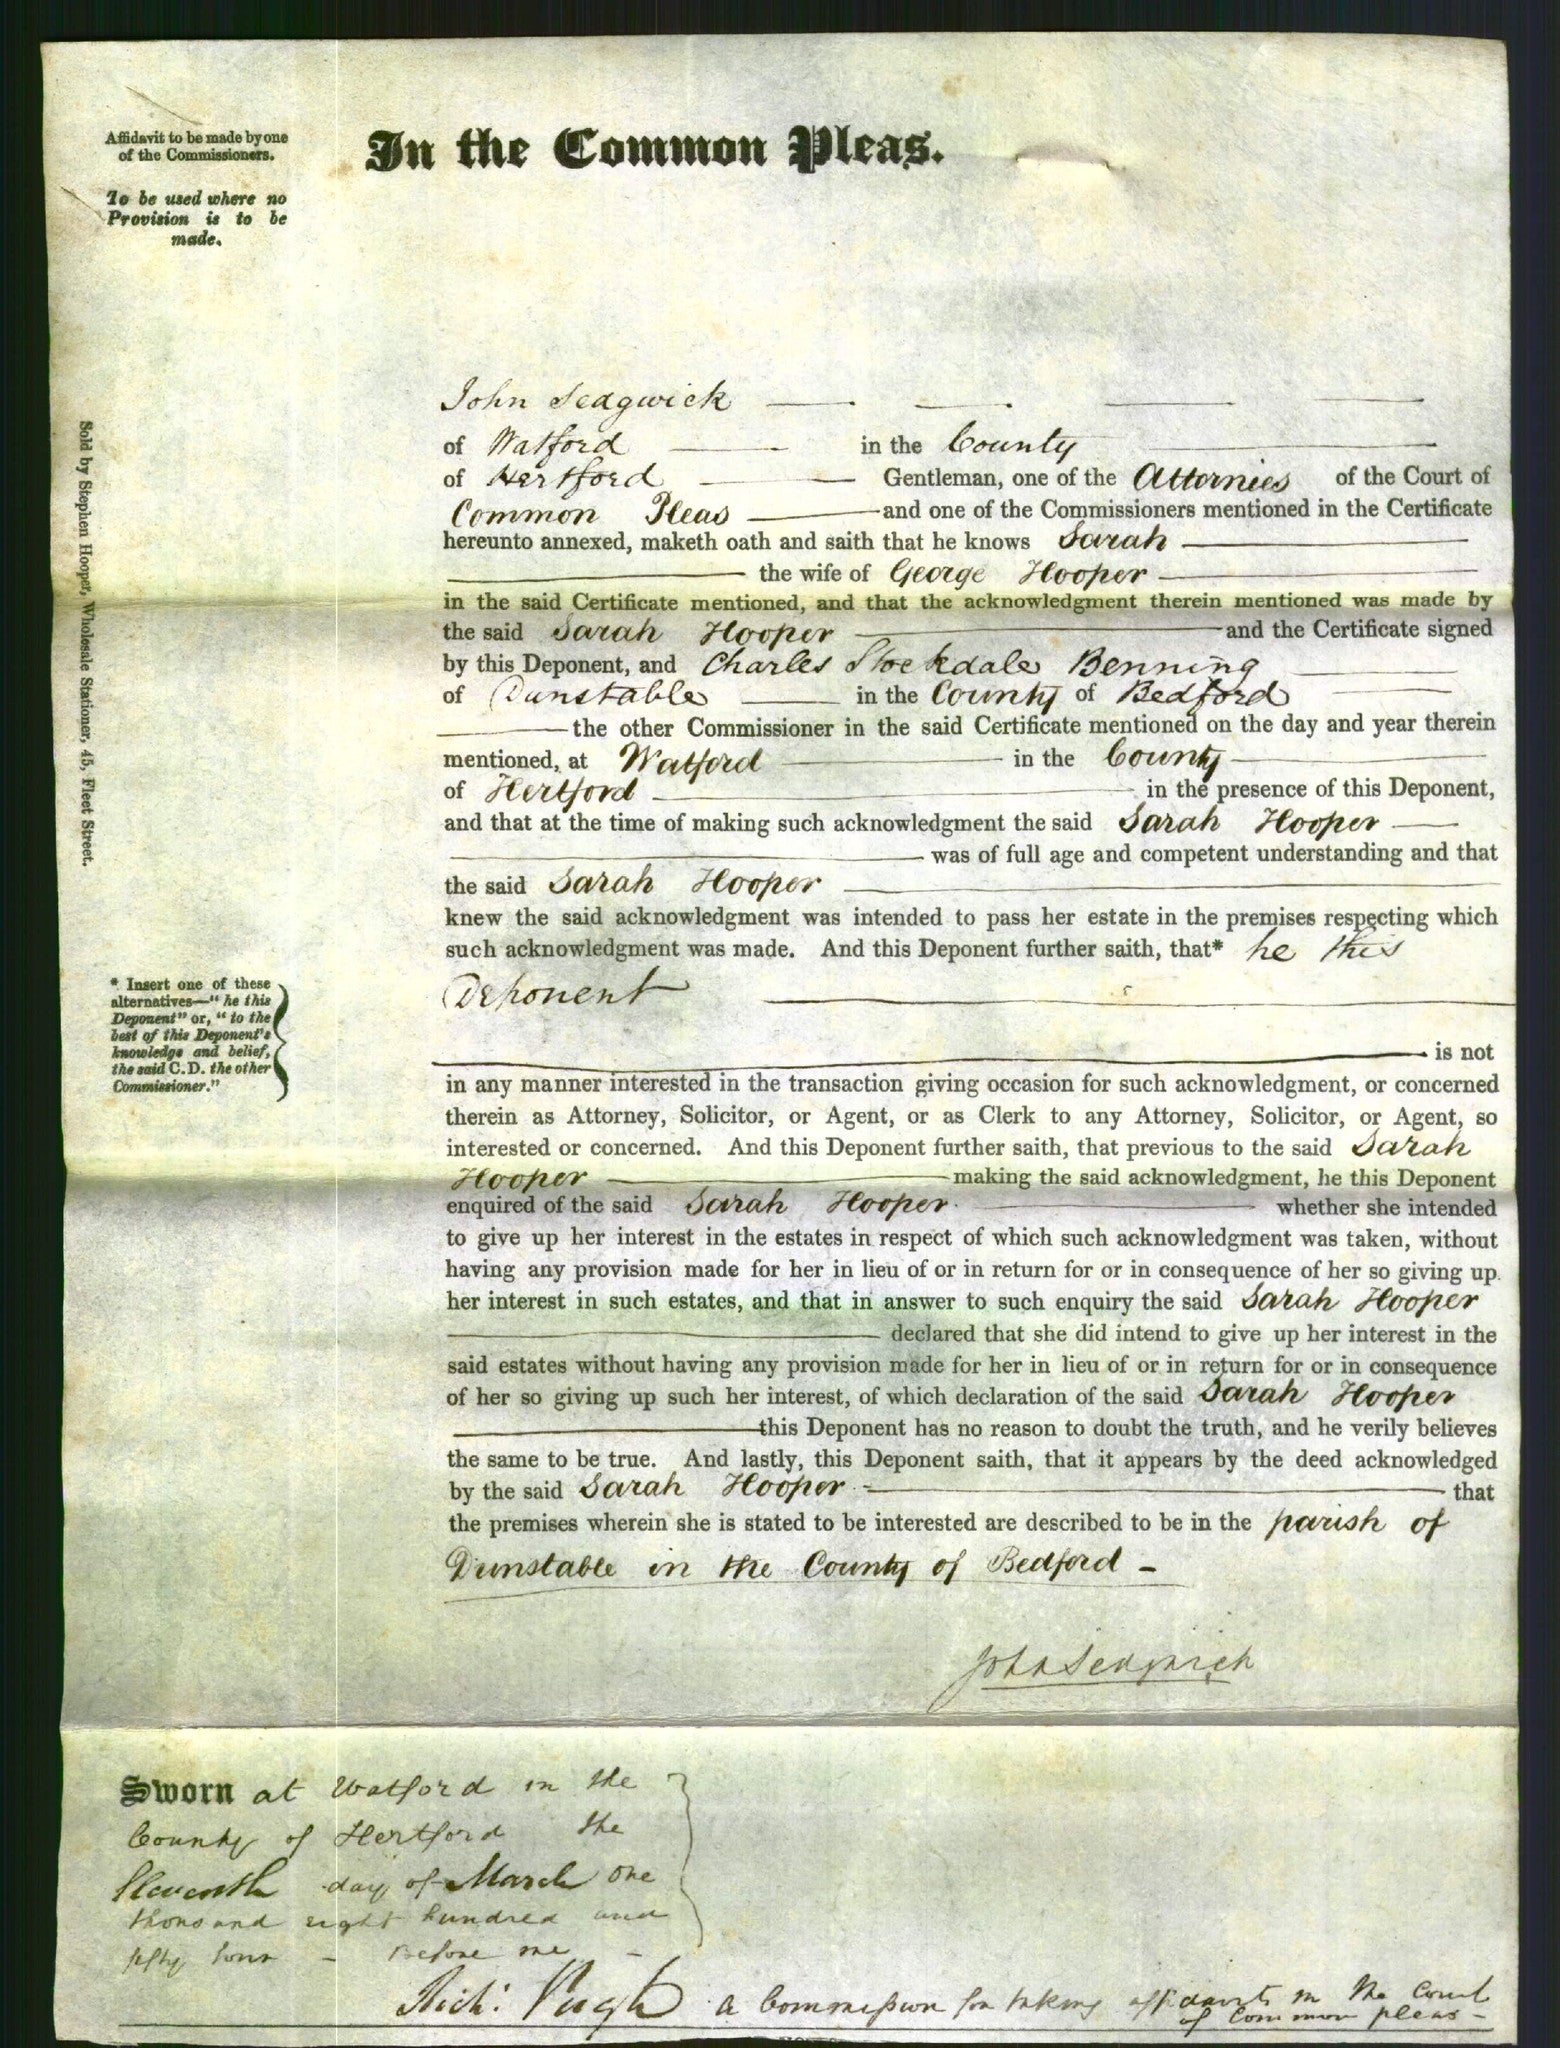 Affidavit to be made by one
of the Commissioners.
To be used where no
Provision is to be
made.
In the Common Pleas.
Sold by Stephen Hooper, Wholesale Stationer, 45, Fleet Street.
John Sedgwick
of Watford in the County
of Hertford Gentleman, one of the Attornies of the Court of
Common Pleas and one of the Commissioners mentioned in the Certificate
hereunto annexed, maketh oath and saith that he knows Sarah
the wife of George Hooper
in the said Certificate mentioned, and that the acknowledgment therein mentioned was made by
the said Sarah Hooper and the Certificate signed
by this Deponent, and Charles Stockdale Benning
of Dunstable in the County of Bedford
the other Commissioner in the said Certificate mentioned on the day and year therein
mentioned, at Watford in the County
of Hertford in the presence of this Deponent,
and that at the time of making such acknowledgment the said Sarah Hooper
was of full age and competent understanding and that
the said Sarah Hooper
knew the said acknowledgment was intended to pass her estate in the premises respecting which
such acknowledgment was made. And this Deponent further saith, that* he this
Deponent
* Insert one of these
alternatives—"he this
Deponent" or, "to the
best of this Deponent's
knowledge and belief,
the said C.D. the other
Commissioner."
is not
in any manner interested in the transaction giving occasion for such acknowledgment, or concerned
therein as Attorney, Solicitor, or Agent, or as Clerk to any Attorney, Solicitor, or Agent, so
interested or concerned. And this Deponent further saith, that previous to the said Sarah
Hooper making the said acknowledgment, he this Deponent
enquired of the said Sarah Hooper whether she intended
to give up her interest in the estates in respect of which such acknowledgment was taken, without
having any provision made for her in lieu of or in return for or in consequence of her so giving up
her interest in such estates, and that in answer to such enquiry the said Sarah Hooper
declared that she did intend to give up her interest in the
said estates without having any provision made for her in lieu of or in return for or in consequence
of her so giving up such her interest, of which declaration of the said Sarah Hooper
this Deponent has no reason to doubt the truth, and he verily believes
the same to be true. And lastly, this Deponent saith, that it appears by the deed acknowledged
by the said Sarah Hooper that
the premises wherein she is stated to be interested are described to be in the parish of
Dunstable in the County of Bedford -
John Sedgwick
Sworn at Watford in the
County of Hertford the
Eleventh day of March one
thousand eight hundred and
fifty four - Before me -
Rich: Pugh a Commissioner for taking affidavits in the Court
of Common pleas -